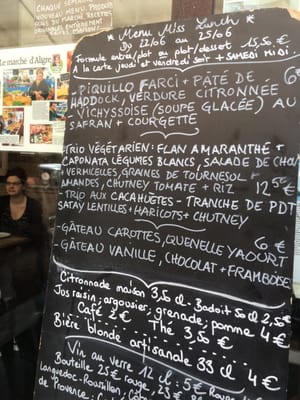 CHAQUE SEMAINE
NOUVEAU MENU, PRODUITS
DU MARCHÉ, RECETTES
ORIGINALES, ENTIÈREMENT
Le marché d'Aligre
* Menu Miss Lunch *
Du 22/06 au 25/06
Formule entrée/plat ou plat/dessert 15,50 €
A la carte jeudi et vendredi soir + SAMEDI MIDI
- PIQUILLO FARCI + PÂTÉ DE
HADDOCK, VERDURE CITRONNÉE
- VICHYSSOISE (SOUPE GLACÉE) AU
SAFRAN + COURGETTE
- TRIO VÉGÉTARIEN: FLAN AMARANTHE +
CAPONATA LÉGUMES BLANCS, SALADE DE
VERMICELLES, GRAINES DE TOURNESOL +
AMANDES, CHUTNEY TOMATE + RIZ 12,50 €
- TRIO AUX CACAHUÈTES - TRANCHE DE PDT
SATAY LENTILLES + HARICOTS + CHUTNEY
- GÂTEAU CAROTTES, QUENELLE YAOURT 6 €
- GÂTEAU VANILLE, CHOCOLAT + FRAMBOISE
Citronnade maison 3,50 cl - Badoit 50 cl 2,50
Jus raisin, argousier, grenade, pomme 4 €
Café 2 € Thé 3,50 €
Bière blonde artisanale 33 cl 4 €
Vin au verre 12 cl: 5 € Rouge
Bouteille 25 € rouge, 23 €
Languedoc-Roussillon,
de Provence: